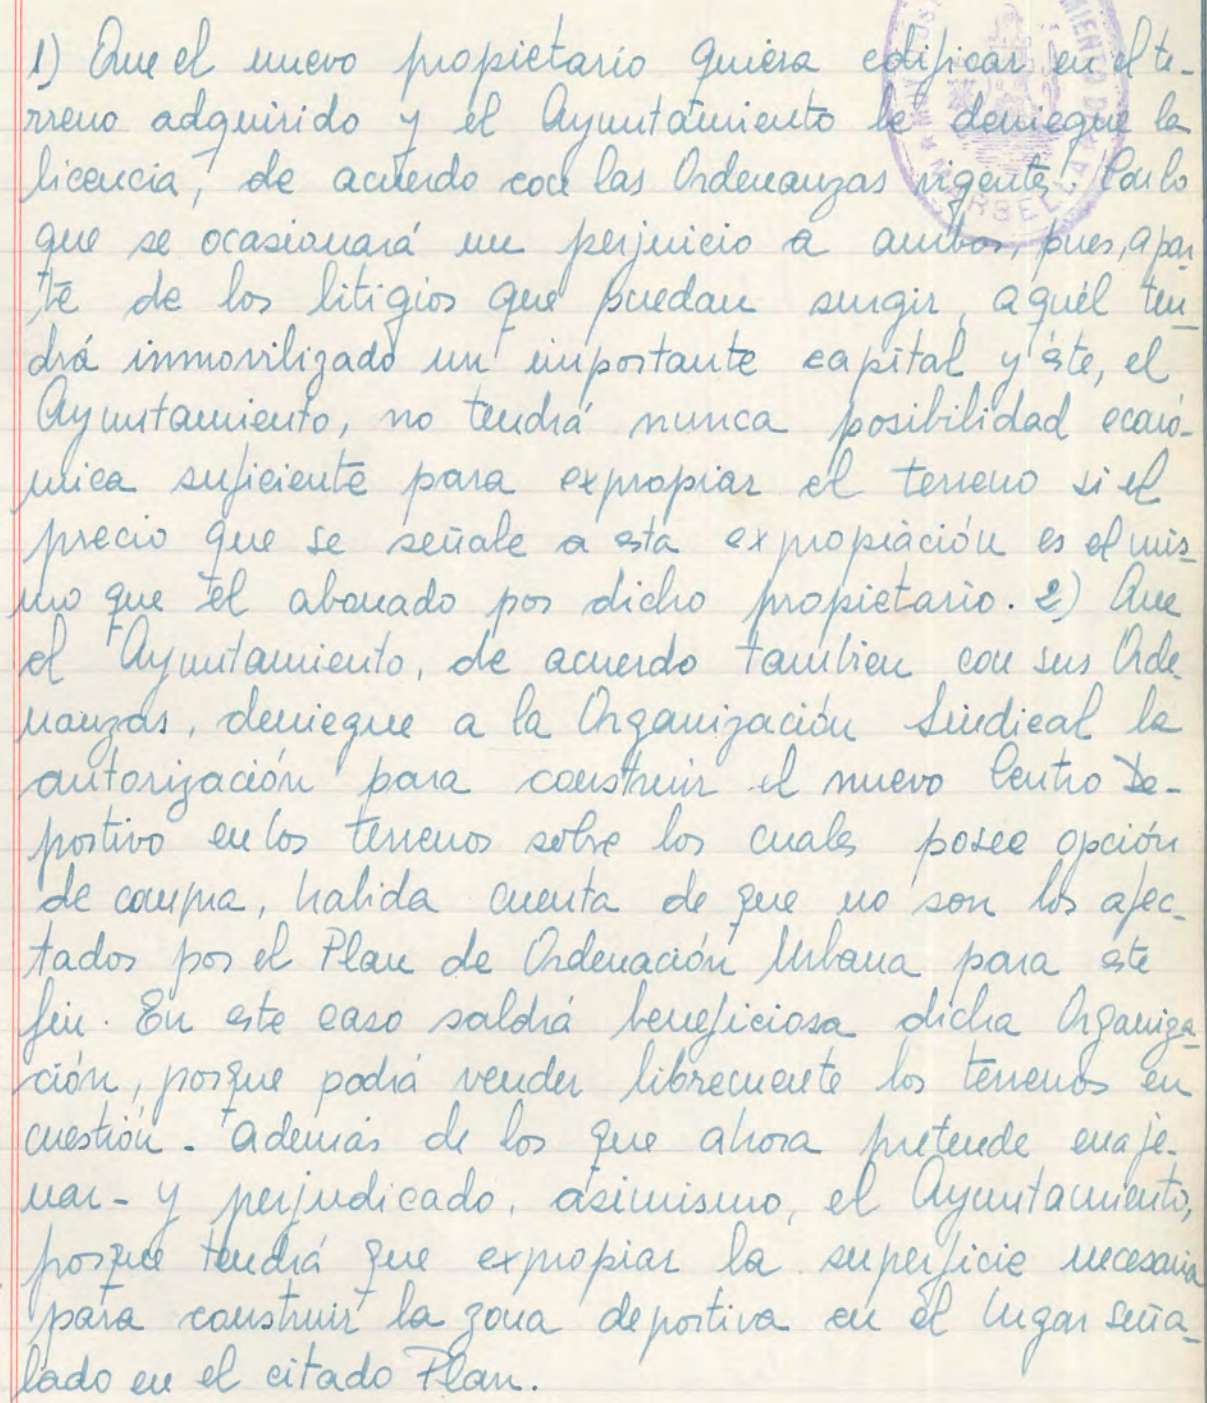 1) Que el nuevo propietario quiera edificar en el te-
rreno adquirido y el Ayuntamiento le deniegue la
licencia, de acuerdo con las Ordenanzas vigentes. Con lo
que se ocasionará un perjuicio a ambos, pues, apar
te de los litigios que puedan surgir, aquél ten_
drá inmovilizado un importante capital y éste, el
Ayuntamiento, no tendrá nunca posibilidad econó-
mica suficiente para expropiar el terreno si el
precio que se señale a esta expropiación es el mis_
mo que el abonado por dicho propietario. 2) Que
el Ayuntamiento, de acuerdo tambien con sus Orde_
nanzas, deniegue a la Organización Sindical la
autorización para construir el nuevo Centro De-
portivo en los terrenos sobre los cuales posee opción
de compra, habida cuenta de que no son los afec_
tados por el Plan de Ordenación Urbana para este
fin. En este caso saldrá beneficiosa dicha Organiza_
ción, porque podrá vender libremente los terrenos en
cuestión - además de los que ahora pretende enaje-
nar - y perjudicado, asimismo, el Ayuntamiento,
porque tendrá que expropiar la superficie necesaria
para construir la zona deportiva en el lugar seña_
lado en el citado Plan.
MARBELLA